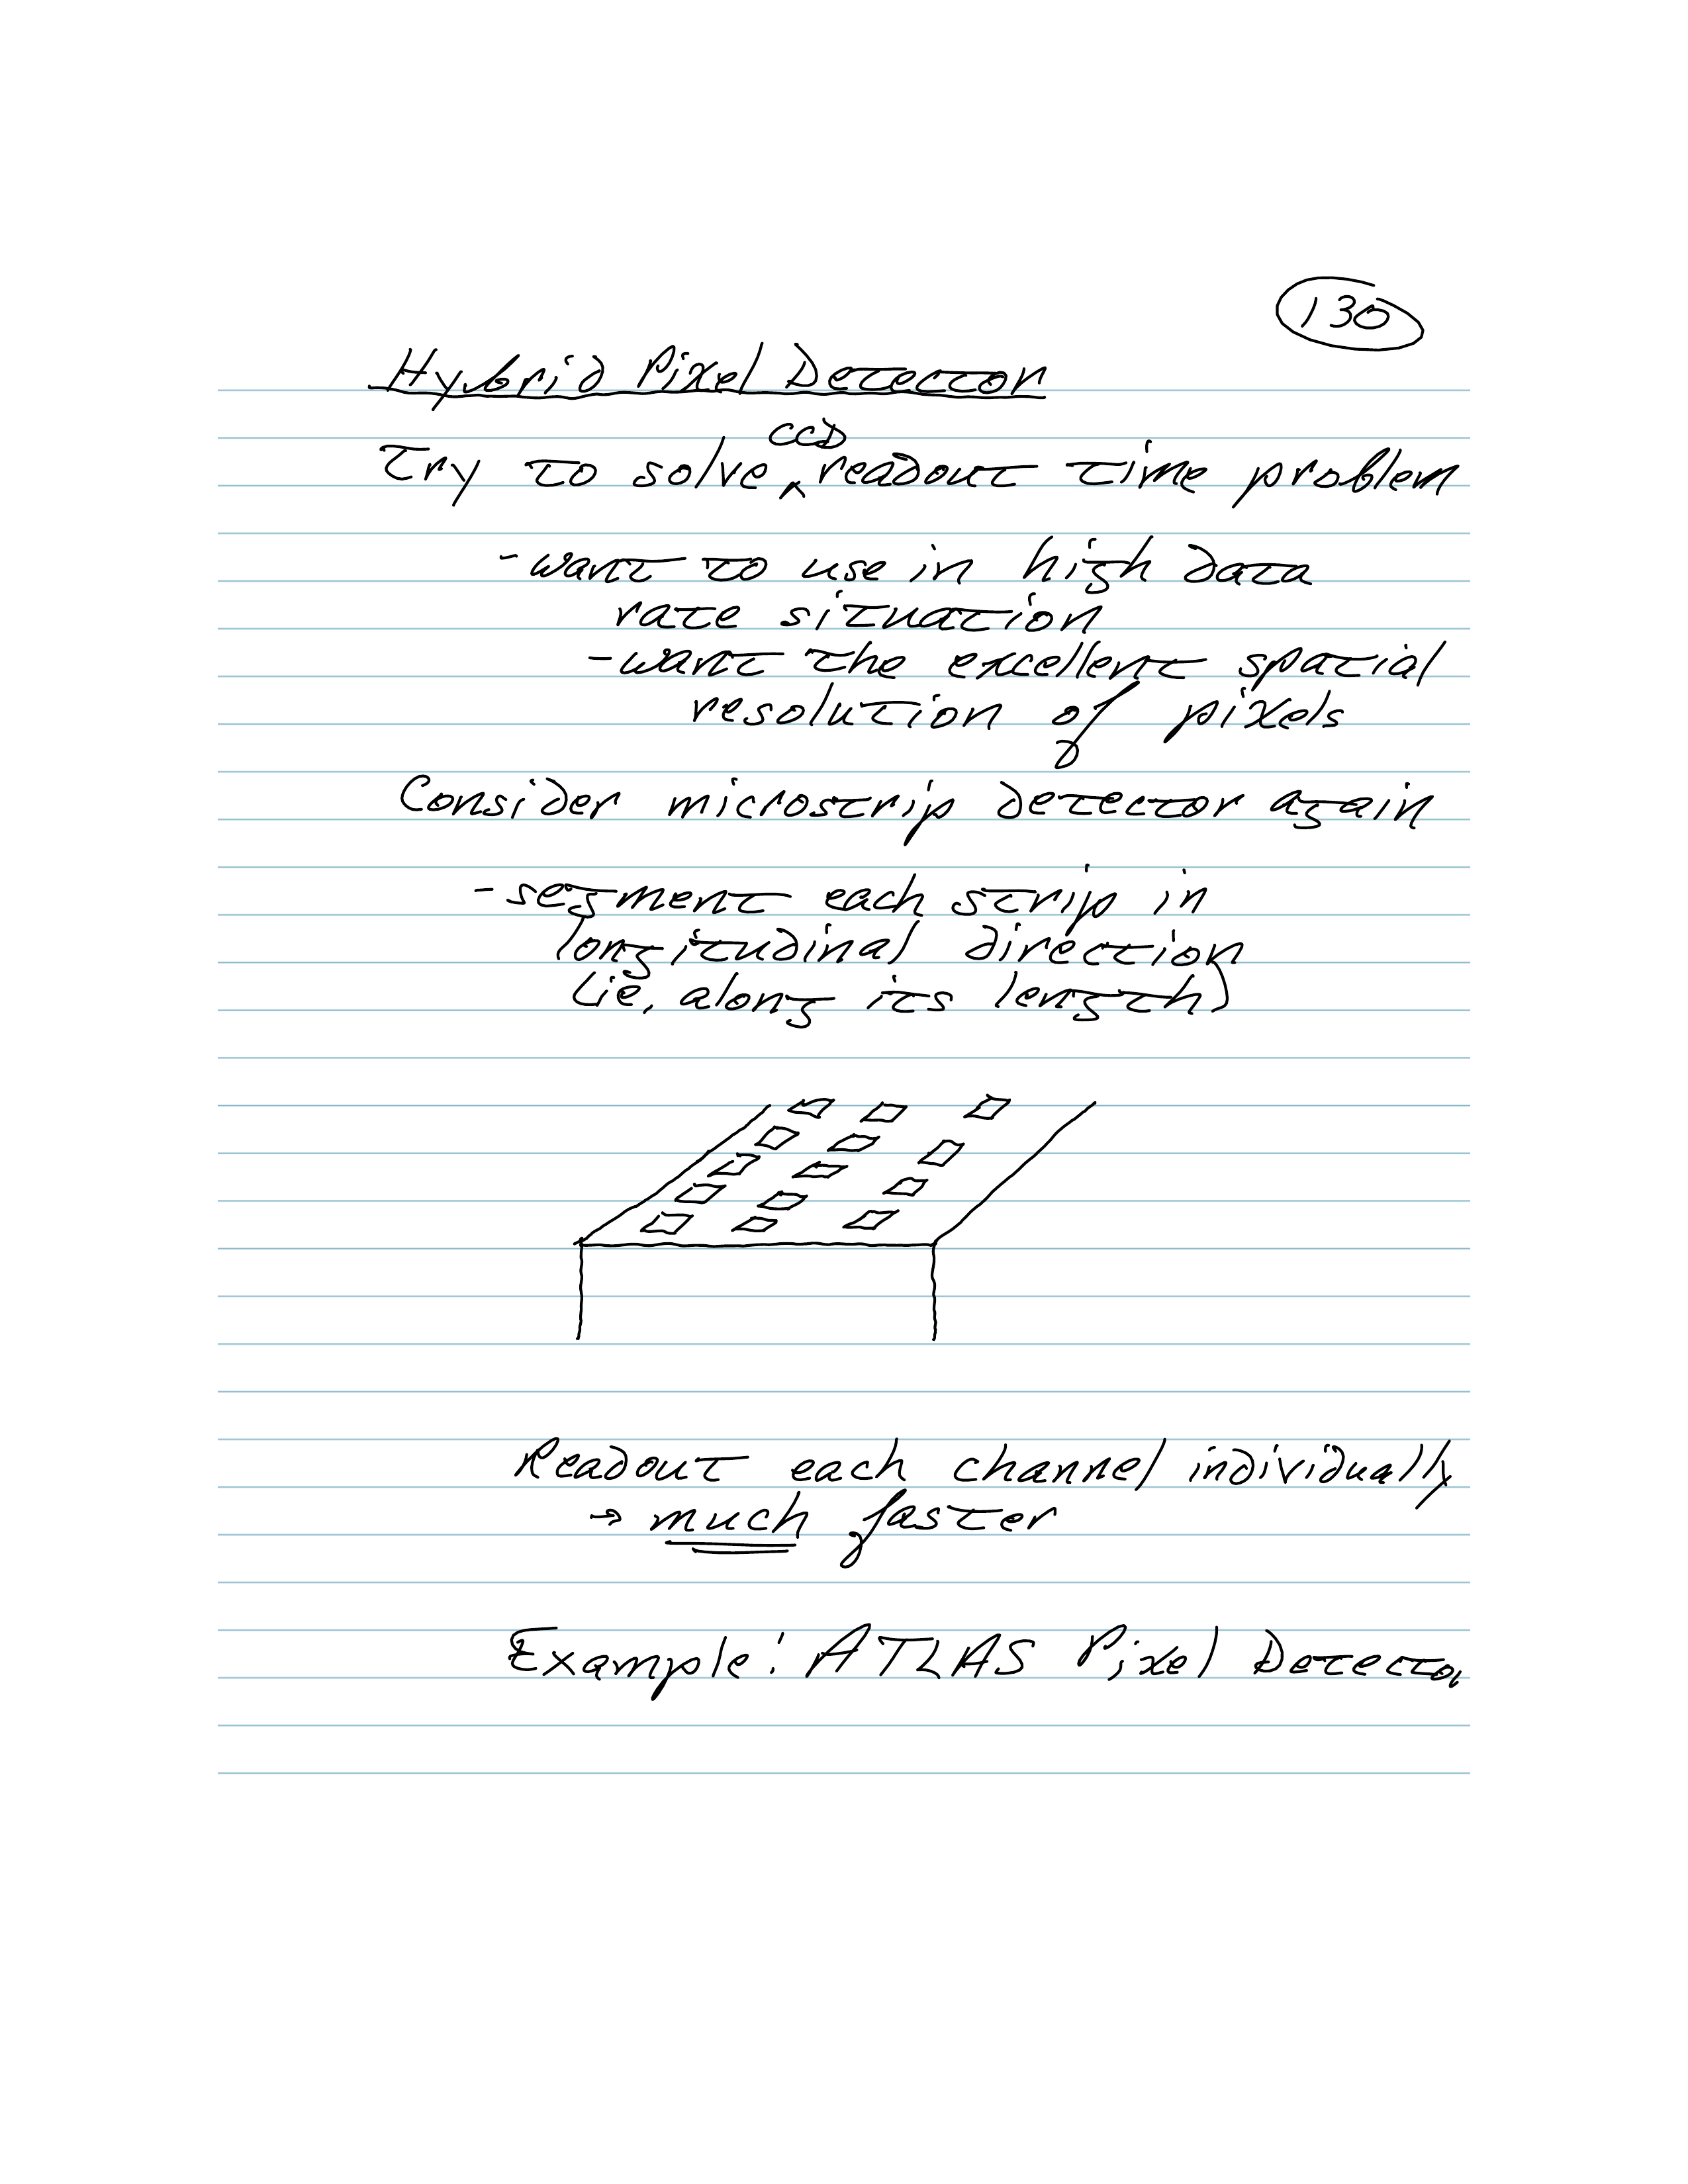 130
Hybrid Pixel Detector
Try to solve CCD readout time problem
- want to use in high data
rate situation
- want the excellent spatial
resolution of pixels
Consider microstrip detector again
- segment each strip in
longitudinal direction
(ie, along its length)
Readout each channel individually
→ much faster
Example: ATLAS Pixel Detector